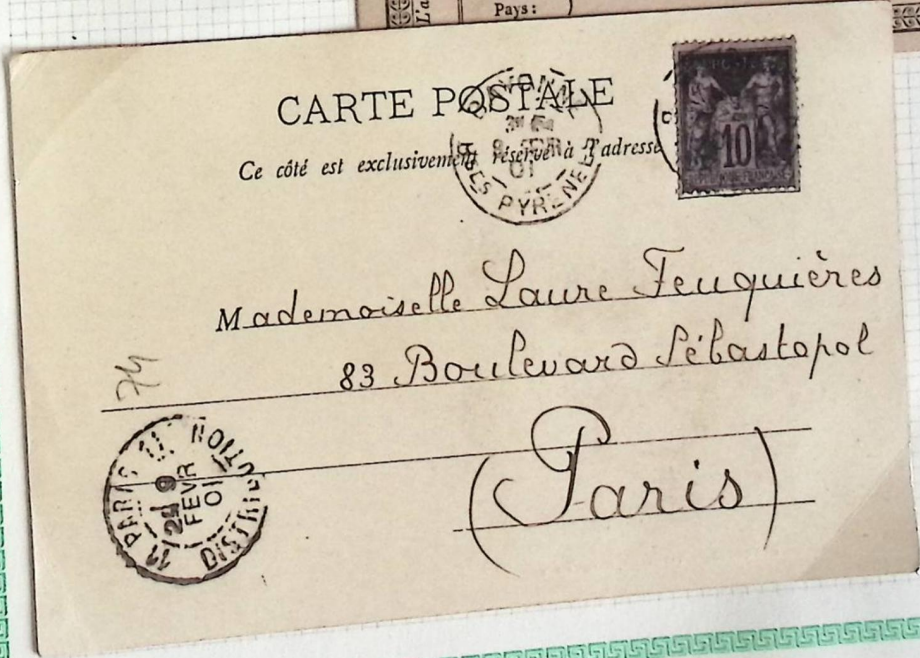 Pays:
CARTE POSTALE
Ce côté est exclusivement réservé à l'adresse
POSTES
10
BAYONNE
FEVR
01
BSES PYRENEES
Mademoiselle Laure Feuquières
83 Boulevard Sébastopol
(Paris)
74
PARIS 11
DISTRIBUTION
9
FEVR
01
11